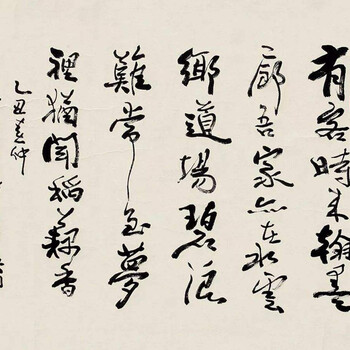 有客時來翰墨
廊吾家亦在水雲
鄉道場碧浪
難常至夢
裡猶聞稻藕香
乙丑春仲